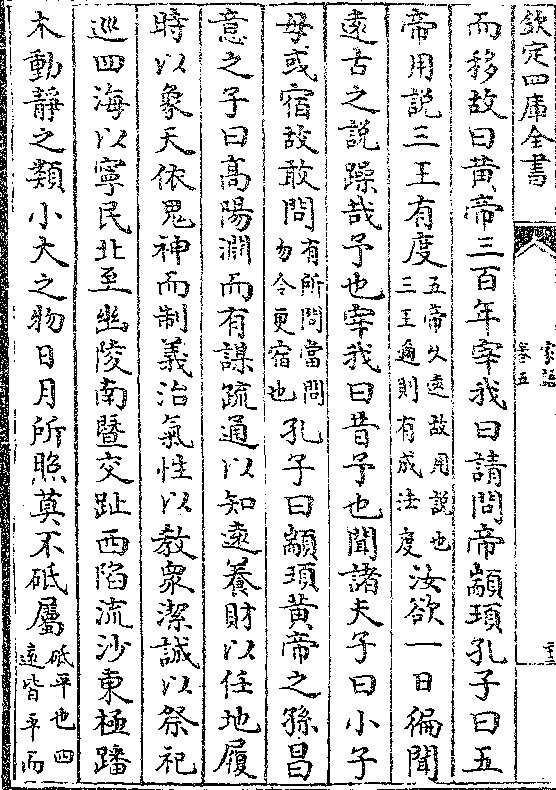 欽定四庫全書
家語
卷五
而移故曰黄帝三百年宰我曰請問帝顓頊孔子曰五
帝用説三王有度五帝久遠故用説也三王邇則有成法度汝欲一日徧聞
逺古之説躁哉予也宰我曰昔予也聞諸夫子曰小子
毋或宿故敢問有所問當問勿令更宿也孔子曰顓頊黄帝之孫昌
意之子曰髙陽淵而有謀疏通以知逺養財以任地履
時以象天依鬼神而制義治氣性以教衆潔誠以祭祀
巡四海以寧民北至幽陵南暨交趾西陷流沙東極蟠
木動靜之類小大之物日月所照莫不砥屬砥平也四逺皆平而